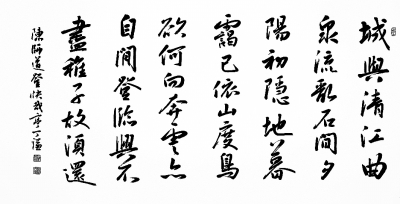 城與清江曲
泉流亂石間夕
陽初隱地暮
靄已依山度鳥
欲何向奔雲亦
自閒登臨興不
盡稚子故須還
陳師道登快哉亭